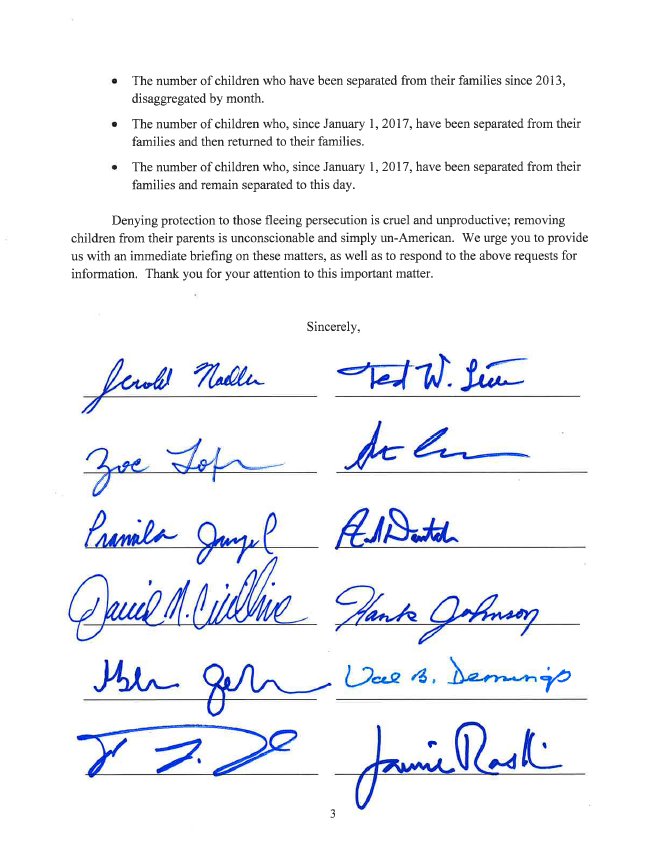 • The number of children who have been separated from their families since 2013,
disaggregated by month.
• The number of children who, since January 1, 2017, have been separated from their
families and then returned to their families.
• The number of children who, since January 1, 2017, have been separated from their
families and remain separated to this day.
Denying protection to those fleeing persecution is cruel and unproductive; removing
children from their parents is unconscionable and simply un-American. We urge you to provide
us with an immediate briefing on these matters, as well as to respond to the above requests for
information. Thank you for your attention to this important matter.
Sincerely,
Jerold Nadler
Ted W. Lieu
Zoe
Pramila
David N. Cicilline
Hank Johnson
Val B. Demings
Jamie Raskin
3